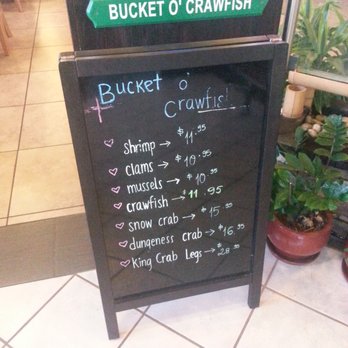 BUCKET O' CRAWFISH
Bucket o'
Crawfish
shrimp → $11.95
clams → $10.95
mussels → $10.95
crawfish → $11.95
snow crab → $15.95
dungeness crab → $16.95
King Crab Legs → $28.95